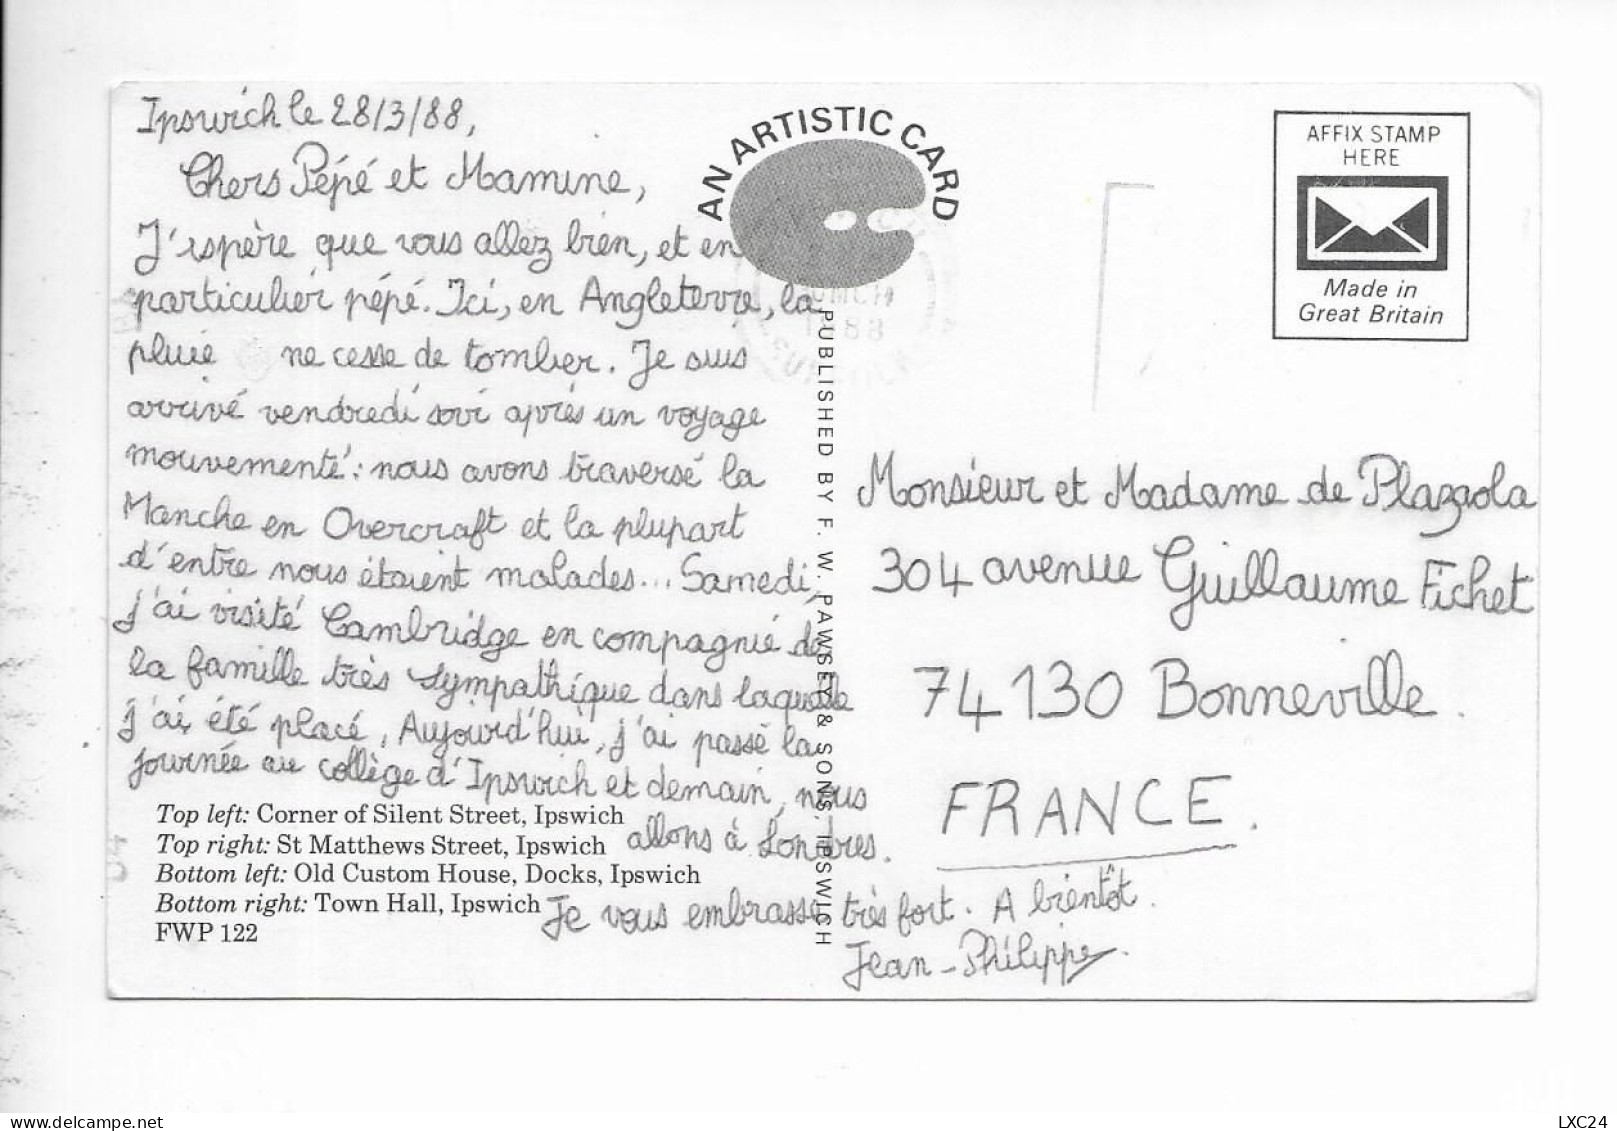 Ipswich le 28/3/88,
Chers Pépé et Mamine,
J'espère que vous allez bien, et en
particulier pépé. Ici, en Angleterre, la
pluie ne cesse de tomber. Je suis
arrivé vendredi soir après un voyage
mouvementé : nous avons traversé la
Manche en Overcraft et la plupart
d'entre nous étaient malades... Samedi,
j'ai visité Cambridge en compagnie de
la famille très sympathique dans laquelle
j'ai été placé. Aujourd'hui, j'ai passé la
journée au collège d'Ipswich et demain, nous
allons à Londres.
Je vous embrasse très fort. A bientôt.
Jean-Philippe.
Top left: Corner of Silent Street, Ipswich
Top right: St Matthews Street, Ipswich
Bottom left: Old Custom House, Docks, Ipswich
Bottom right: Town Hall, Ipswich
FWP 122
AN ARTISTIC CARD
PUBLISHED BY F. W. PAWSEY & SONS, IPSWICH
1988
AFFIX STAMP
HERE
Made in
Great Britain
Monsieur et Madame de Plazaola
304 avenue Guillaume Fichet
74130 Bonneville.
FRANCE.
delcampe.net
LXC24